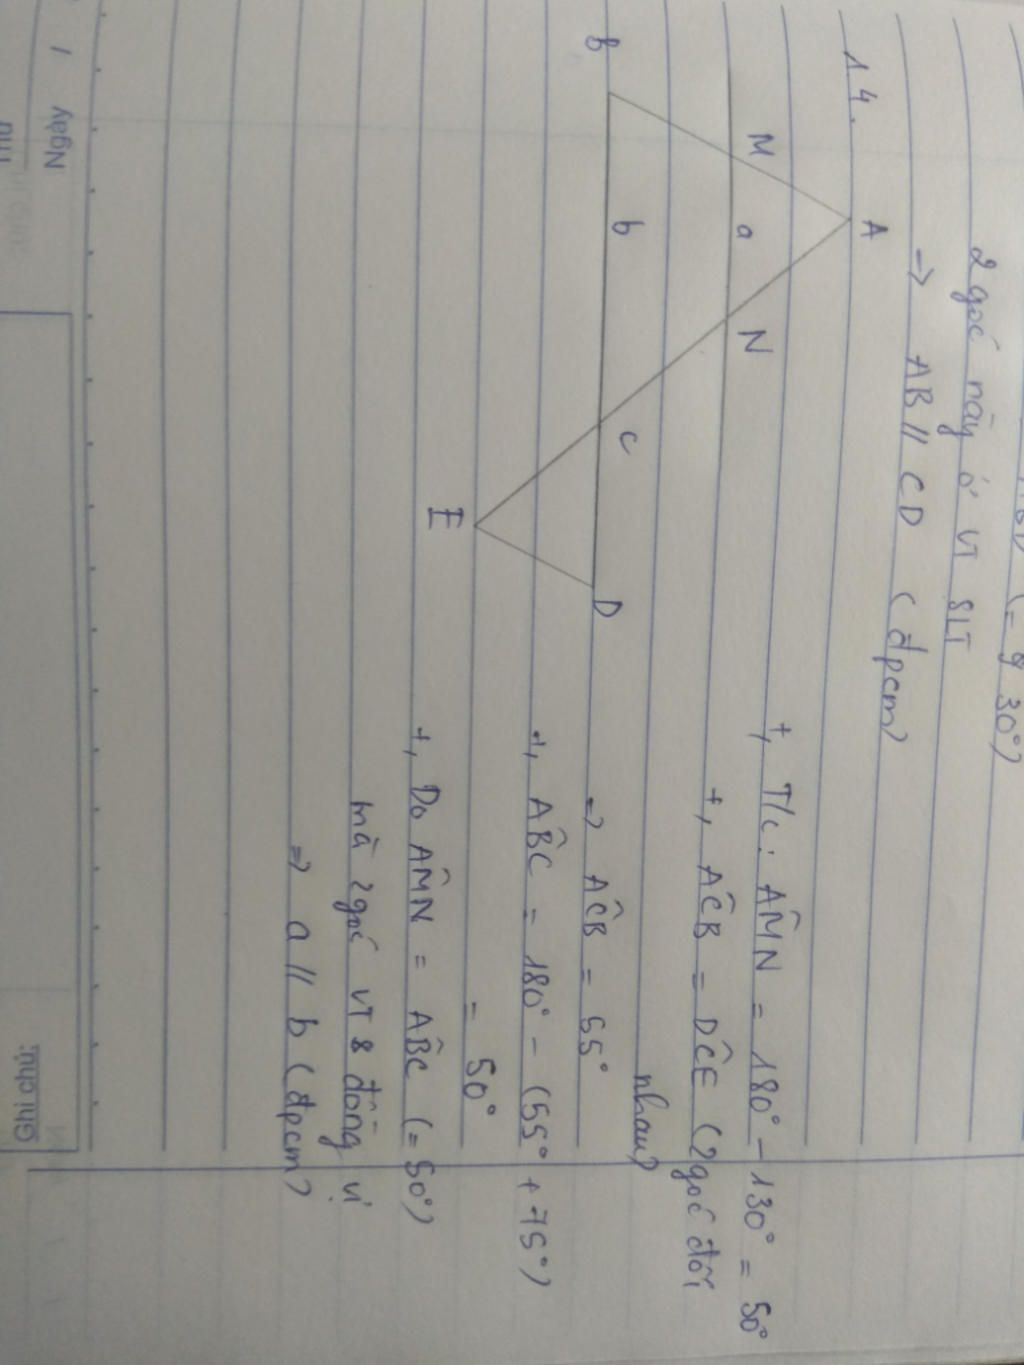 (= 30°)
2 góc này ở vt SLT
=> AB // CD (đpcm)
14.
A
M
a
N
B
b
C
D
E
+, T/c: AMN = 180° - 130° = 50°
+, ACB = DCE (2 góc đối
nhau)
=> ACB = 55°
+, ABC = 180° - (55° + 75°)
= 50°
+, Do AMN = ABC (= 50°)
mà 2 góc vt đồng vị
=> a // b (đpcm)
Ngày
Ghi chú: